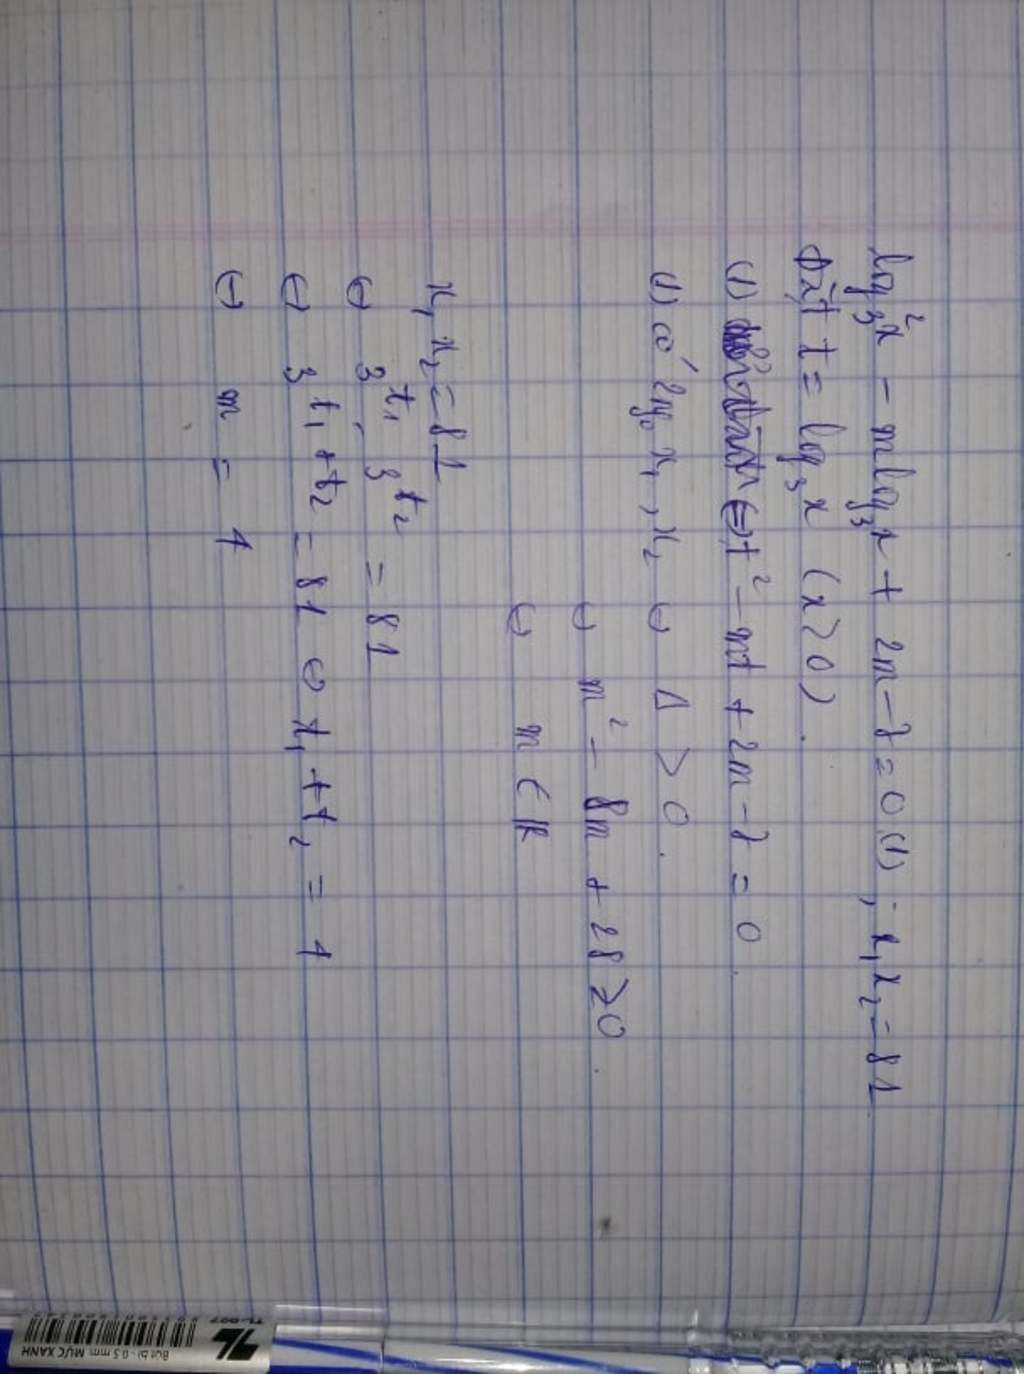 log₃²x - mlog₃x + 2m - 7 = 0 (1) ; x₁x₂ = 81
Đặt t = log₃x (x > 0).
(1) ⇔ t² - mt + 2m - 7 = 0.
(1) có 2ng₀ x₁, x₂ ⇔ Δ > 0.
⇔ m² - 8m + 28 ≥ 0.
⇔ m ∈ ℝ
x₁x₂ = 81
⇔ 3^t₁ . 3^t₂ = 81
⇔ 3^t₁+t₂ = 81 ⇔ t₁ + t₂ = 4
⇔ m = 4
TL-027
Bút bi - 0.5 mm MỰC XANH